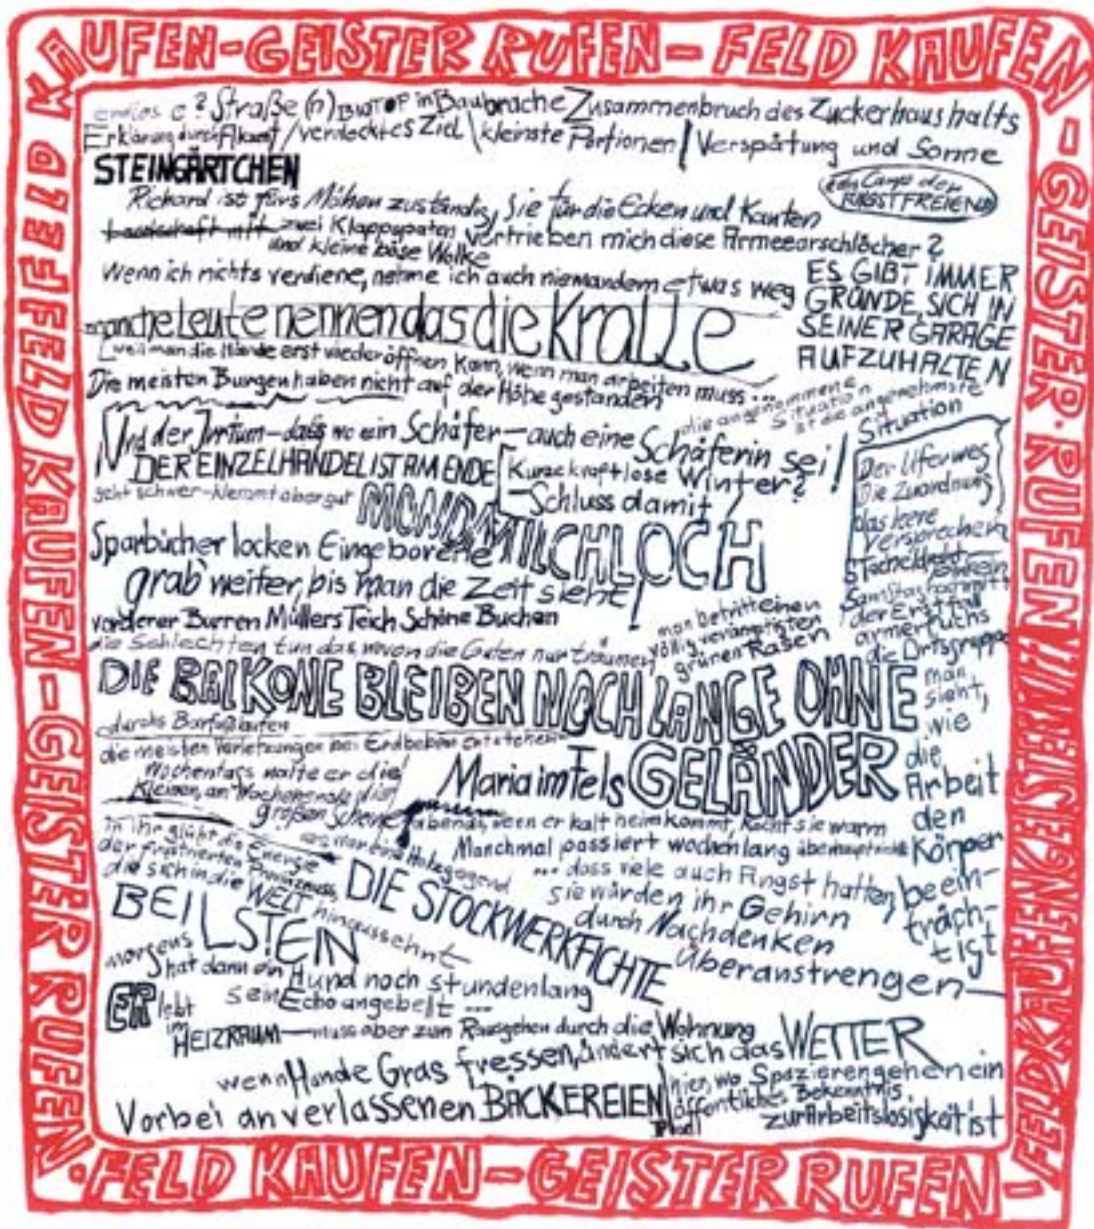 KAUFEN-GEISTER RUFEN-FELD KAUFEN
-GEISTER RUFEN!!!
FELDKAUFENGEISTERN
FELD KAUFEN-GEISTER RUFEN-
FELD KAUFEN-GEISTER RUFEN.
endlos e? Straße (n) BIOTOP in Baubrache Zusammenbruch des Zuckerhaushalts
Erklärung durch /verdecktes Ziel \kleinste Portionen / Verspätung und Sonne
STEINGÄRTCHEN
Camp der ANGSTFREIEN
Richard ist fürs Mähen zuständig, Sie für die Ecken und Kanten
Landschaft mit zwei Klappspaten
und kleine böse Wolke
vertrieben mich diese Armeearschlöcher?
Wenn ich nichts verdiene, nehme ich auch niemandem etwas weg
ES GIBT IMMER
GRÜNDE, SICH IN
SEINER GARAGE
AUFZUHALTEN
manche Leute nennen das die Kralle
weil man die Hände erst wieder öffnen kann, wenn man arbeiten muss...
Die meisten Burgen haben nicht auf der Höhe gestanden
die angenommene
Situation
ist die angenehmste
Situation
Und der Irrtum-daß wo ein Schäfer-auch eine Schäferin sei!
DER EINZELHANDEL IST AM ENDE
Kurze kraftlose Winter?
-Schluss damit!
geht schwer-klemmt aber gut
MONDMILCHLOCH
Der Uferweg
Die Zuordnung
das leere
Versprechen
Samstagnachmittag
der Ernstfall
armer Fuchs
die Ortsgruppe
Sparbücher locken Eingeborene
grab weiter, bis man die Zeit sieht!
vorderer Burren Müllers Teich Schöne Buchan
die Schlechten tun das, wovon die Guten nur träumen
man betritt einen
völlig verängstigten
grünen Rasen
DIE BALKONE BLEIBEN NOCH LANGE OHNE
GELÄNDER
durchs Barfußlaufen
die meisten Verletzungen bei Erdbeben entstehen
Maria im Fels
Wochentags malte er die
Kleinen, am Wochenende die
großen Scheine
man
sieht,
wie
die
Arbeit
den
Körper
beein-
träch-
tigt
abends, wenn er kalt heimkommt, kocht sie warm
Manchmal passiert wochenlang überhaupt nichts
... dass viele auch Angst hatten
sie würden ihr Gehirn
durch Nachdenken
überanstrengen
in ihr glüht die Energie
der frustrierten
die sich in die WELT hinaussehnt
DIE STOCKWERKFICHTE
BEILSTEIN
morgens
hat dann ein Hund noch stundenlang
sein Echo angebellt ...
ER lebt
im
HEIZRAUM-muss aber zum Rausgehen durch die Wohnung
wenn Hunde Gras fressen, ändert sich das WETTER
Vorbei an verlassenen BÄCKEREIEN
hier, wo Spazierengehen ein
öffentliches Bekenntnis
zur Arbeitslosigkeit ist